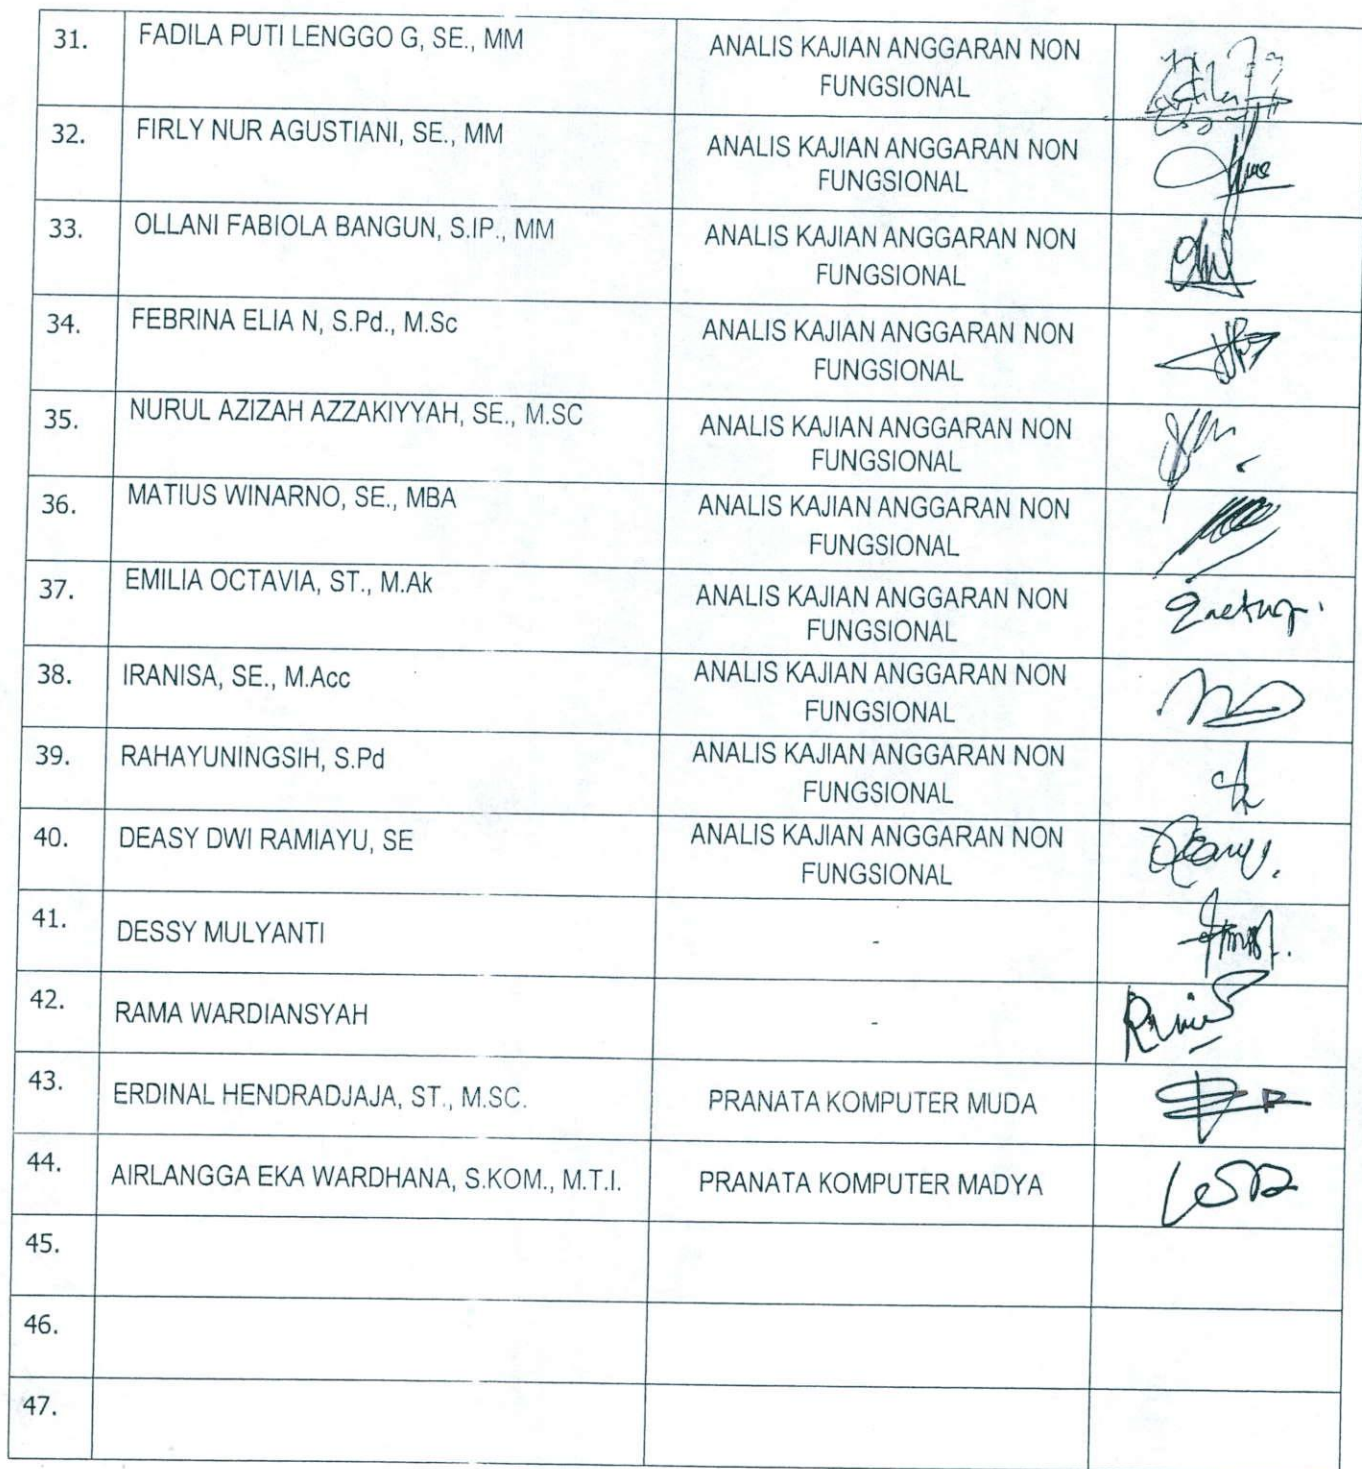 31. FADILA PUTI LENGGO G, SE., MM ANALIS KAJIAN ANGGARAN NON
FUNGSIONAL
32. FIRLY NUR AGUSTIANI, SE., MM ANALIS KAJIAN ANGGARAN NON
FUNGSIONAL
33. OLLANI FABIOLA BANGUN, S.IP., MM ANALIS KAJIAN ANGGARAN NON
FUNGSIONAL
34. FEBRINA ELIA N, S.Pd., M.Sc ANALIS KAJIAN ANGGARAN NON
FUNGSIONAL
35. NURUL AZIZAH AZZAKIYYAH, SE., M.SC ANALIS KAJIAN ANGGARAN NON
FUNGSIONAL
36. MATIUS WINARNO, SE., MBA ANALIS KAJIAN ANGGARAN NON
FUNGSIONAL
37. EMILIA OCTAVIA, ST., M.Ak ANALIS KAJIAN ANGGARAN NON
FUNGSIONAL
38. IRANISA, SE., M.Acc ANALIS KAJIAN ANGGARAN NON
FUNGSIONAL
39. RAHAYUNINGSIH, S.Pd ANALIS KAJIAN ANGGARAN NON
FUNGSIONAL
40. DEASY DWI RAMIAYU, SE ANALIS KAJIAN ANGGARAN NON
FUNGSIONAL
41. DESSY MULYANTI -
42. RAMA WARDIANSYAH -
43. ERDINAL HENDRADJAJA, ST., M.SC. PRANATA KOMPUTER MUDA
44. AIRLANGGA EKA WARDHANA, S.KOM., M.T.I. PRANATA KOMPUTER MADYA
45.
46.
47.